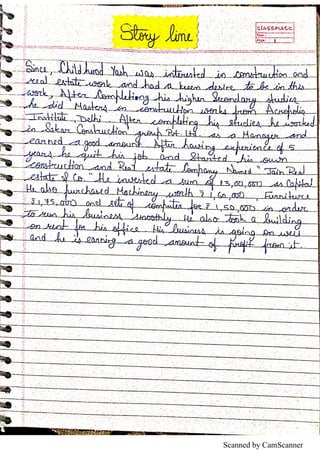 Story line
classmate
Date
Page
Since, Childhood Yash was interested in construction and
real estate work and had a keen desire to be in this
work, After Completing his higher Secondary studies
he did Masters in construction works from Acropolis
Institute, Delhi. After completing his studies he worked
in Sakar Construction group Pvt. Ltd. as a Manager and
earned a good amount. After having experience of 5
years he quit his job and Started his own
construction and Real estate Company Named "Jain Real
estate & Co." He invested a sum of 15,00,000 as Capital
He also purchased Machinery worth ₹ 1,60,000, Furniture
₹ 1,75,000 and sets of computer for ₹ 1,50,000 in order
to run his business smoothly. He also took a building
on rent for his office. His business is going on well
and he is earning a good amount of profit from it.
Scanned by CamScanner